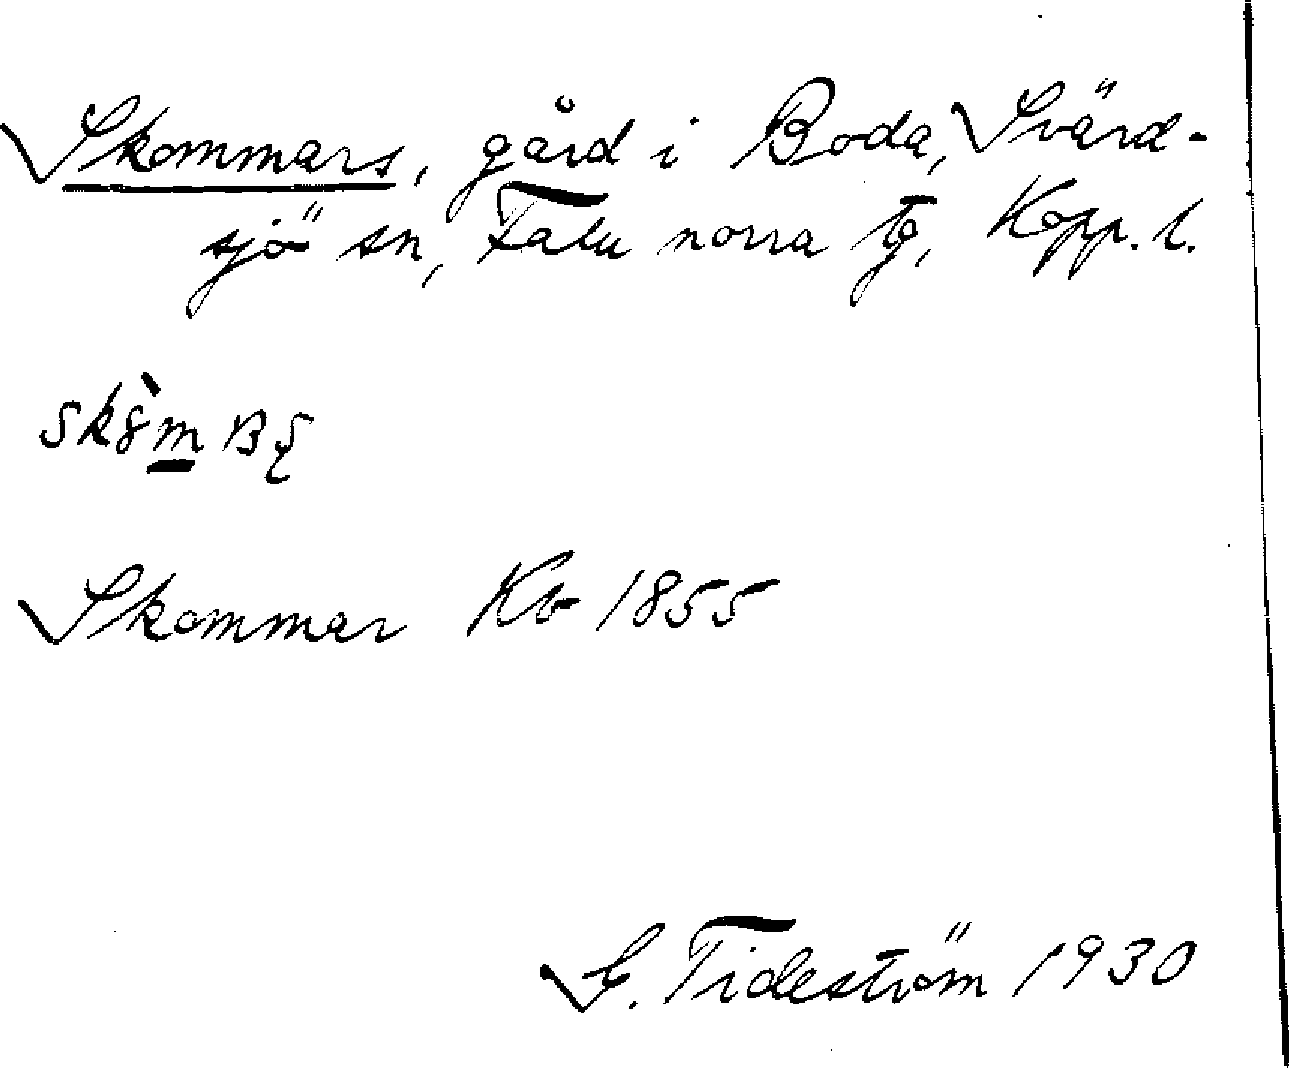 Skommars, gård i Boda, Svärd-
sjö sn, Falu norra tg, Kopp. l.
Skommar Kb 1855
G. Tideström 1930